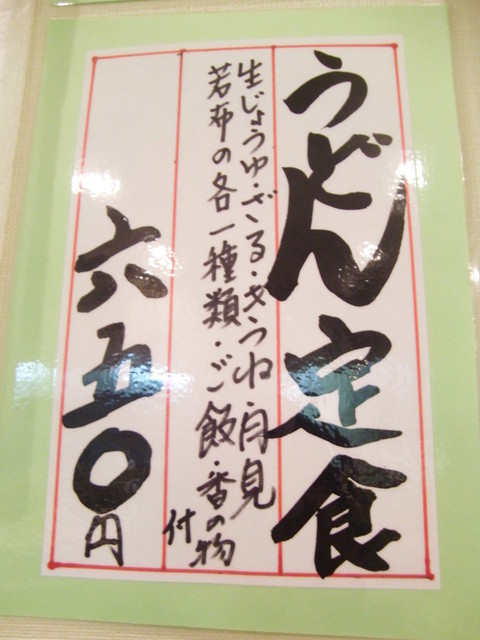 うどん定食
生じょうゆ・ざる・きつね・月見
若布の各一種類・ご飯・香の物
付
六五〇円